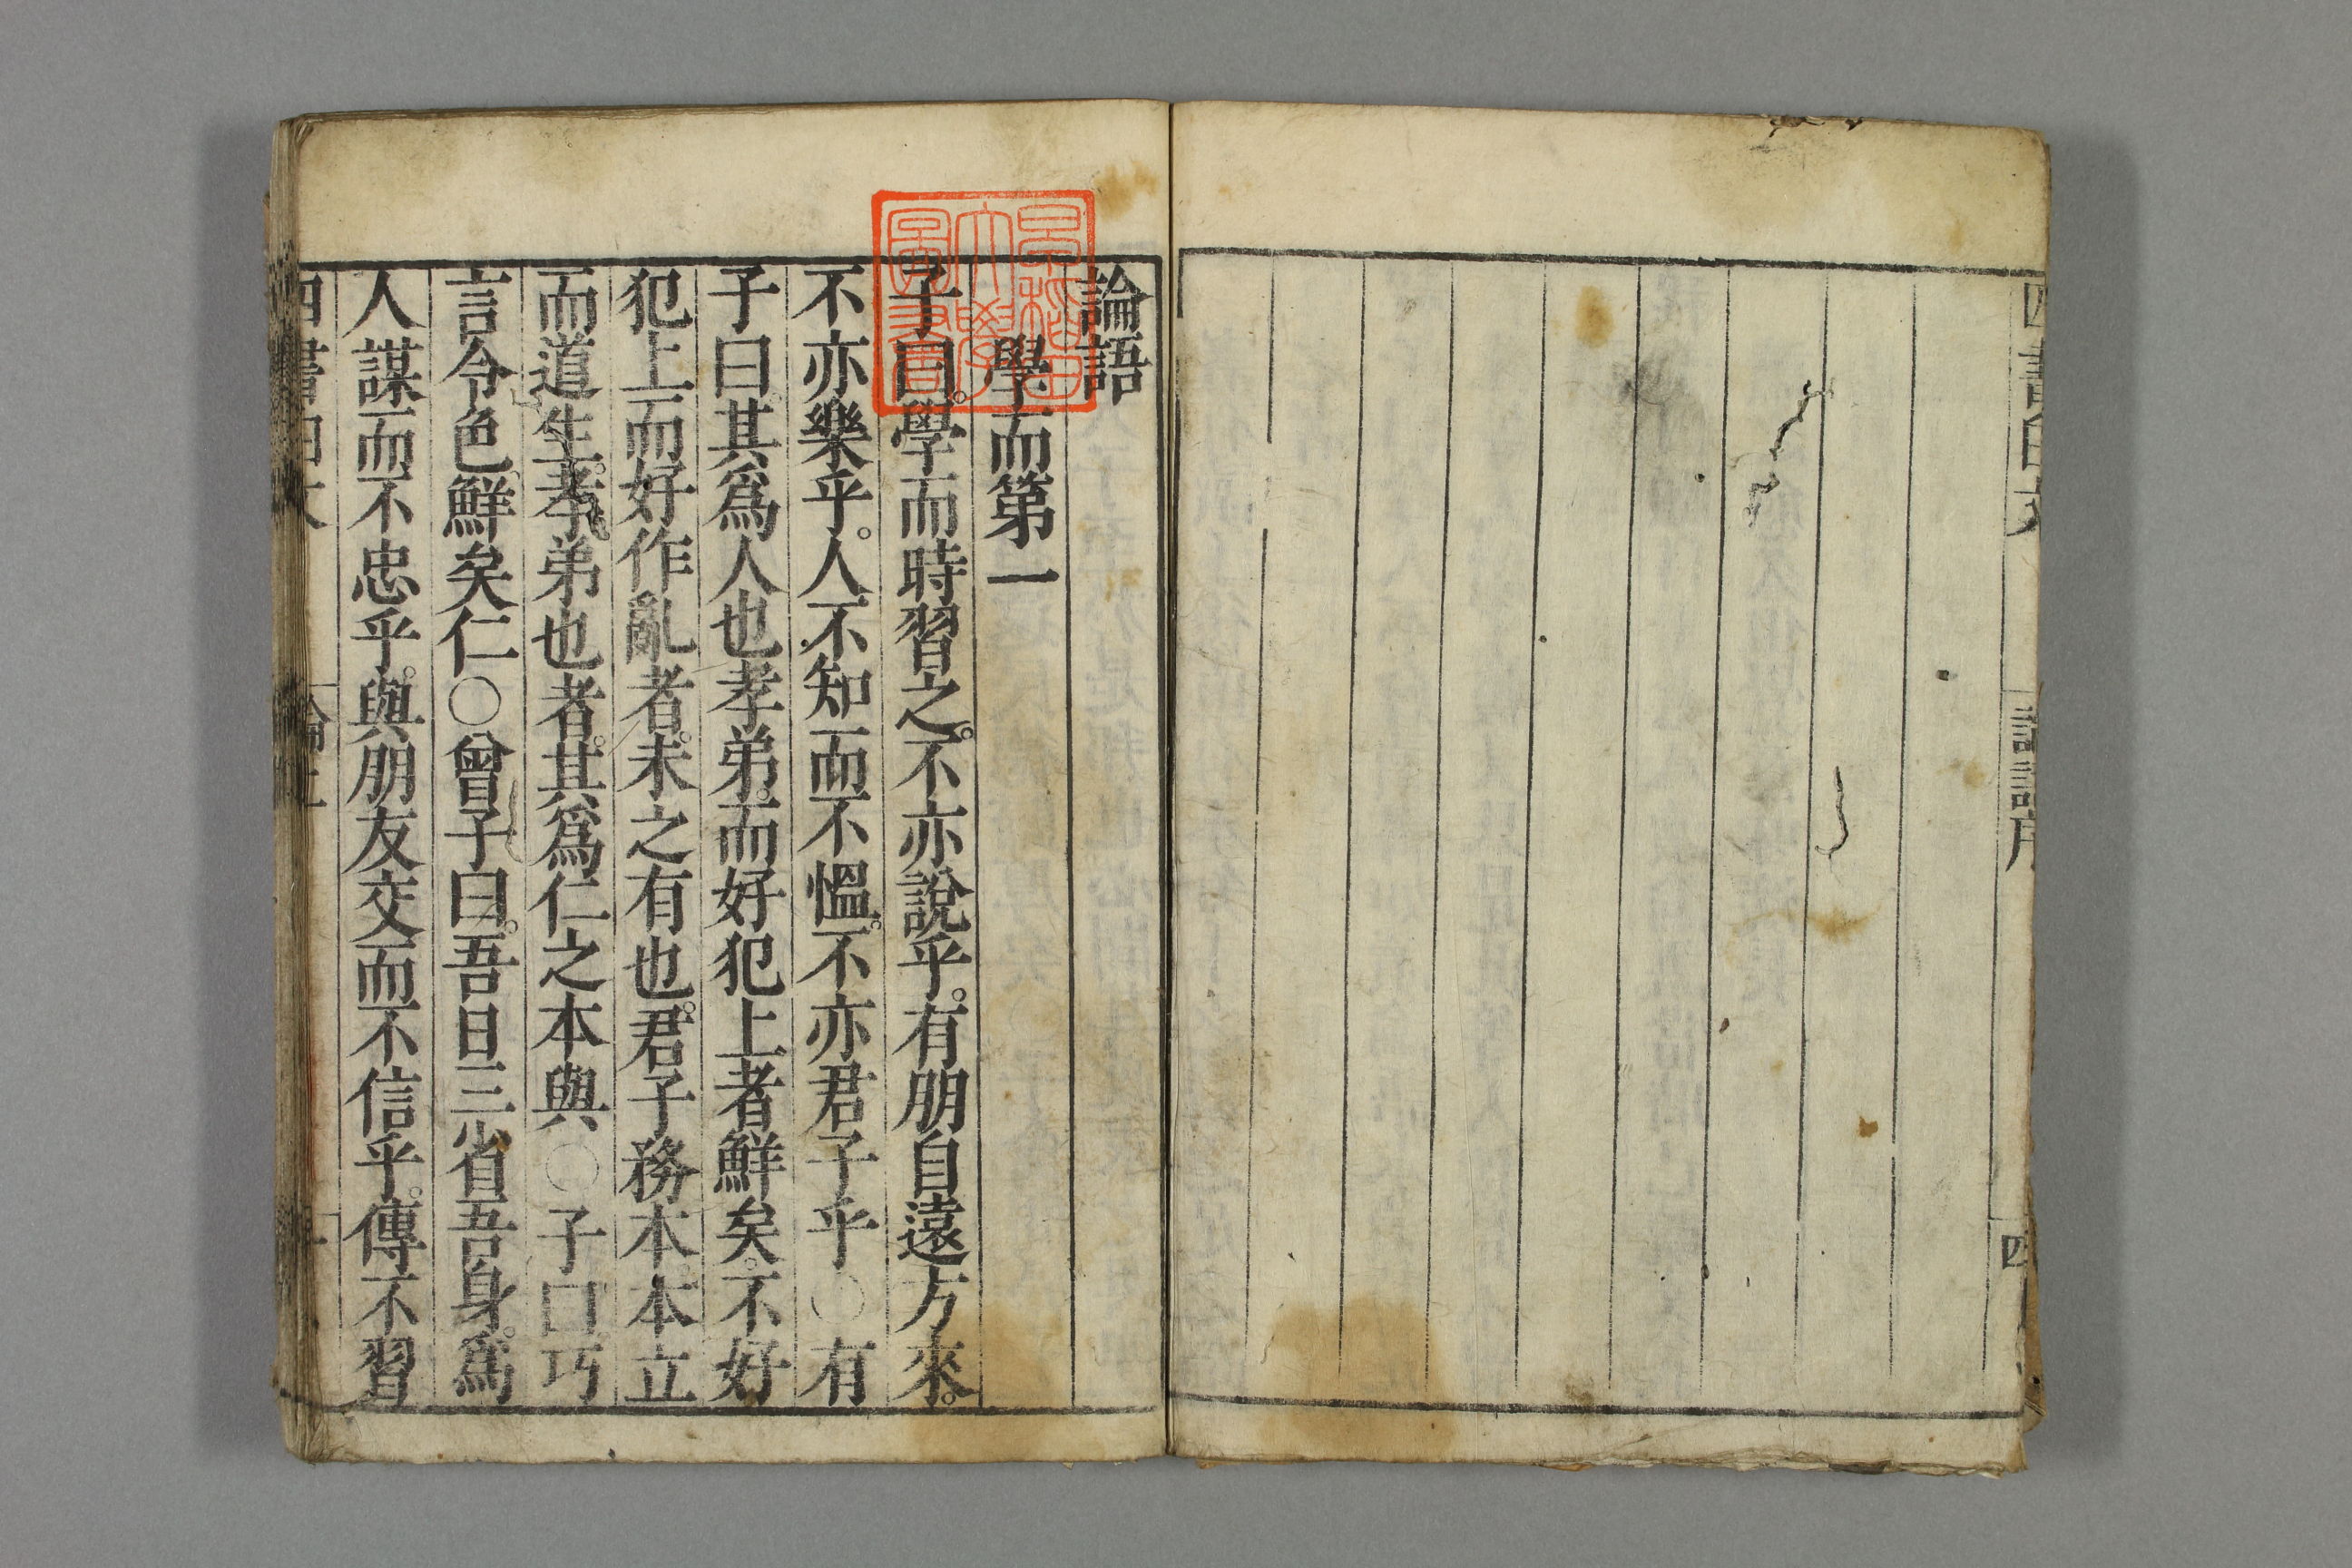 四書白文
論語序
四
早稻田
大學
圖書
論語
學而第一
子曰。學而時習之。不亦說乎。有朋自遠方來。
不亦樂乎。人不知而不慍。不亦君子乎〇有
子曰。其爲人也孝弟。而好犯上者鮮矣。不好
犯上而好作亂者。未之有也。君子務本。本立
而道生。孝弟也者。其爲仁之本與〇子曰。巧
言令色。鮮矣仁〇曾子曰。吾日三省吾身。爲
人謀而不忠乎。與朋友交而不信乎。傳不習
四書白文
論上